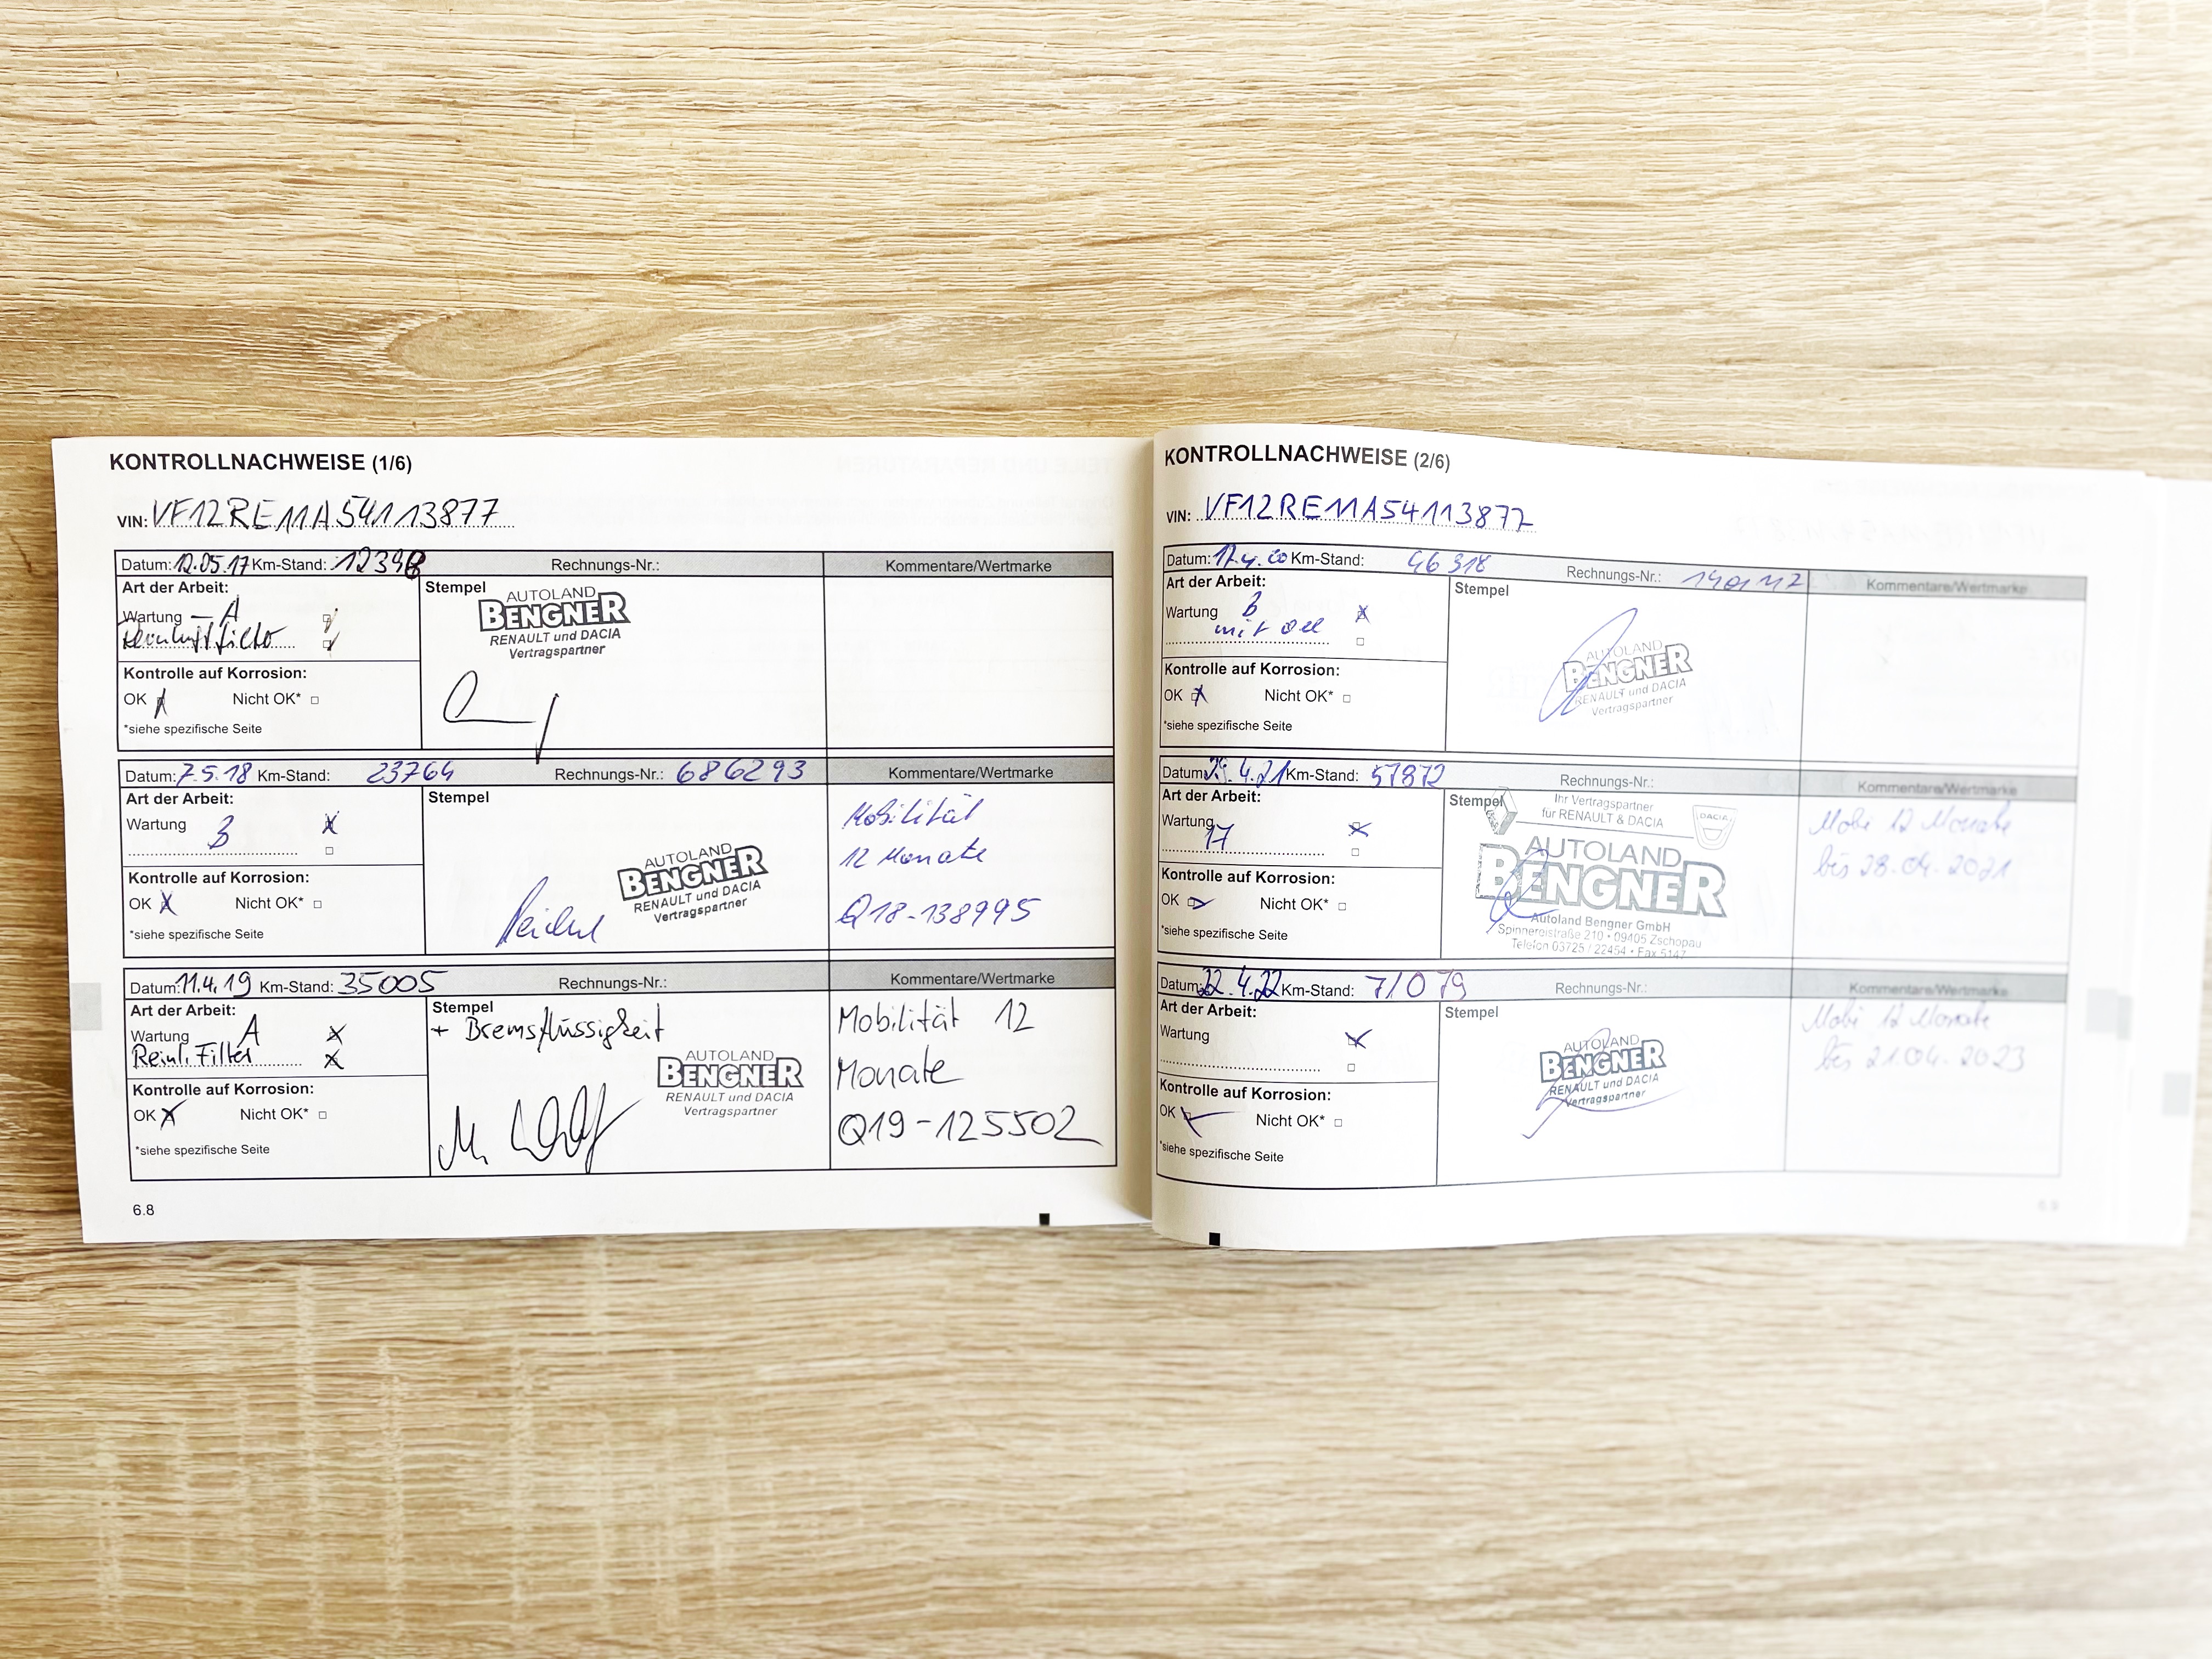 KONTROLLNACHWEISE (1/6)
VIN: VF12RE11A54113877
Datum: 12.05.17 Km-Stand: Rechnungs-Nr.: Kommentare/Wertmarke
Art der Arbeit: Stempel
Wartung – A
AUTOLAND
BENGNER
RENAULT und DACIA
Vertragspartner
Kontrolle auf Korrosion:
OK Nicht OK*
*siehe spezifische Seite
Datum: 7.5.18 Km-Stand: 23764 Rechnungs-Nr.: 686293 Kommentare/Wertmarke
Art der Arbeit: Stempel
Wartung B
AUTOLAND
BENGNER
RENAULT und DACIA
Vertragspartner
Mobilität
12 Monate
Q18-138995
Kontrolle auf Korrosion:
OK Nicht OK*
*siehe spezifische Seite
Datum: 11.4.19 Km-Stand: 35005 Rechnungs-Nr.: Kommentare/Wertmarke
Art der Arbeit: Stempel
Wartung A
Reinl. Filter
+ Bremsflüssigkeit
AUTOLAND
BENGNER
RENAULT und DACIA
Vertragspartner
Mobilität 12
Monate
Q19-125502
Kontrolle auf Korrosion:
OK Nicht OK*
*siehe spezifische Seite
6.8
KONTROLLNACHWEISE (2/6)
VIN: VF12RE11A54113877
Datum: 17.4.20 Km-Stand: 46318 Rechnungs-Nr.: Kommentare/Wertmarke
Art der Arbeit: Stempel
Wartung B
mit Oel
AUTOLAND
BENGNER
RENAULT und DACIA
Vertragspartner
Kontrolle auf Korrosion:
OK Nicht OK*
*siehe spezifische Seite
Datum: Km-Stand: 57872 Rechnungs-Nr.: Kommentare/Wertmarke
Art der Arbeit: Stempel
Wartung
Ihr Vertragspartner
für RENAULT & DACIA
DACIA
AUTOLAND
BENGNER
Autoland Bengner GmbH
Spinnereistraße 210 • 09405 Zschopau
Telefon 03725 / 22454 • Fax 5147
Mobi 12 Monate
bis 28.04.2021
Kontrolle auf Korrosion:
OK Nicht OK*
*siehe spezifische Seite
Datum: 22.4.22 Km-Stand: 71079 Rechnungs-Nr.: Kommentare/Wertmarke
Art der Arbeit: Stempel
Wartung
AUTOLAND
BENGNER
RENAULT und DACIA
Vertragspartner
Mobi 12 Monate
bis 21.04.2023
Kontrolle auf Korrosion:
OK Nicht OK*
*siehe spezifische Seite
6.9